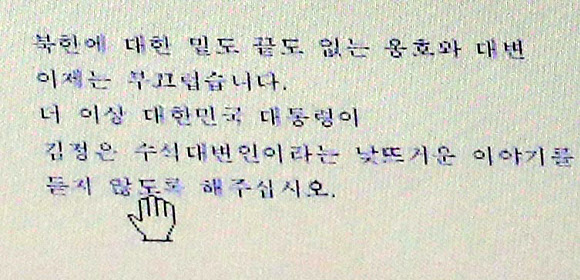 북한에 대한 밑도 끝도 없는 옹호와 대변
이제는 부끄럽습니다.
더 이상 대한민국 대통령이
김정은 수석대변인이라는 낯뜨거운 이야기를
듣지 않도록 해주십시오.